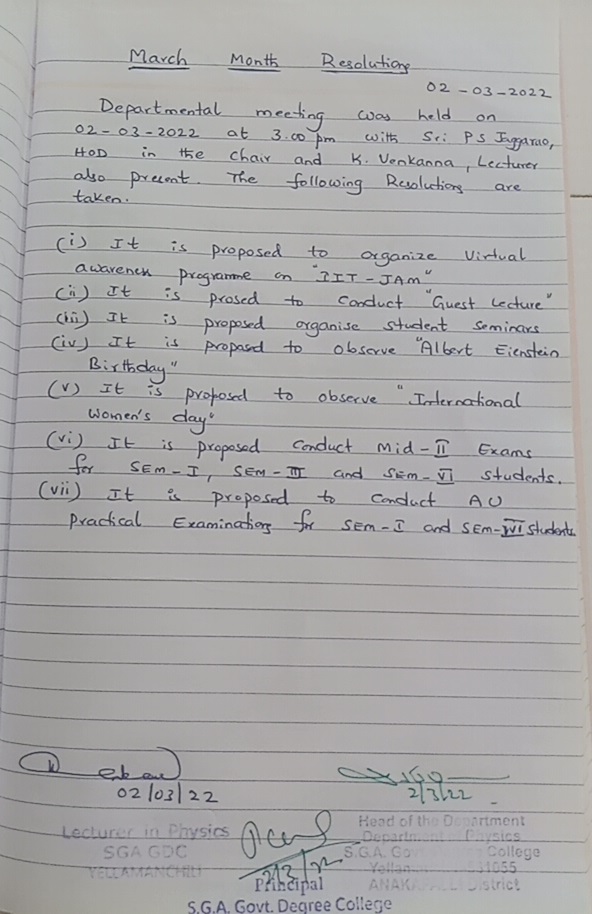 March Month Resolutions
02-03-2022
Departmental meeting was held on
02-03-2022 at 3.00 pm with Sri P S Jaggarao,
HOD in the chair and K. Venkanna, Lecturer
also present. The following Resolutions are
taken.
(i) It is proposed to organize virtual
awareness programme on "IIT-JAM"
(ii) It is prosed to conduct "Guest Lecture"
(iii) It is proposed organise student Seminars
(iv) It is proposed to observe "Albert Eienstein
Birthday"
(v) It is proposed to observe "International
Women's day"
(vi) It is proposed conduct Mid-II Exams
for SEM-I, SEM-III and SEM-VI students.
(vii) It is proposed to conduct AU
Practical Examinations for SEM-I and SEM-VI students
02/03/22
2/3/22
Lecturer in Physics
SGA GDC
YELLAMANCHILI
2/3/22
Principal
S.G.A. Govt. Degree College
Head of the Department
Department of Physics
S.G.A. College
ANAKAPALLI District